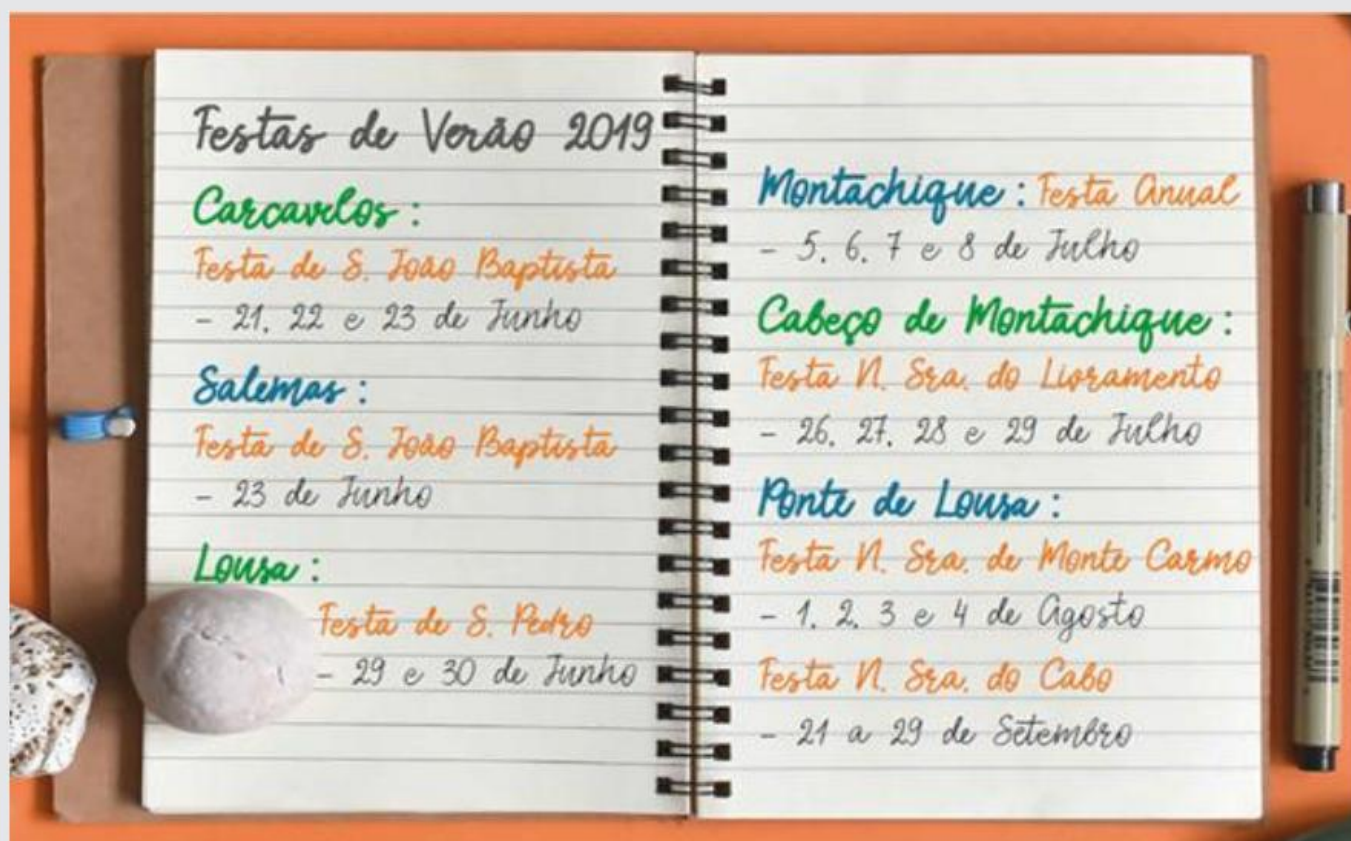 Festas de Verão 2019
Carcavelos :
Festa de S. João Baptista
- 21, 22 e 23 de Junho
Salemas :
Festa de S. João Baptista
- 23 de Junho
Lousa :
Festa de S. Pedro
- 29 e 30 de Junho
Montachique : Festa Anual
- 5, 6, 7 e 8 de Julho
Cabeço de Montachique :
Festa N. Sra. do Livramento
- 26, 27, 28 e 29 de Julho
Ponte de Lousa :
Festa N. Sra. de Monte Carmo
- 1, 2, 3 e 4 de Agosto
Festa N. Sra. do Cabo
- 21 a 29 de Setembro